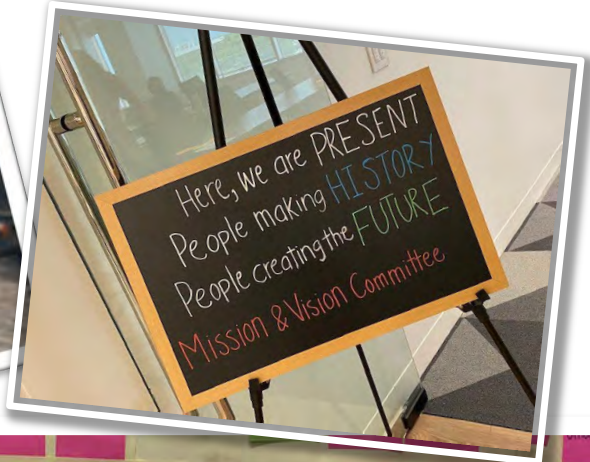 Here, we are PRESENT
People making HISTORY
People creating the FUTURE
Mission & Vision Committee